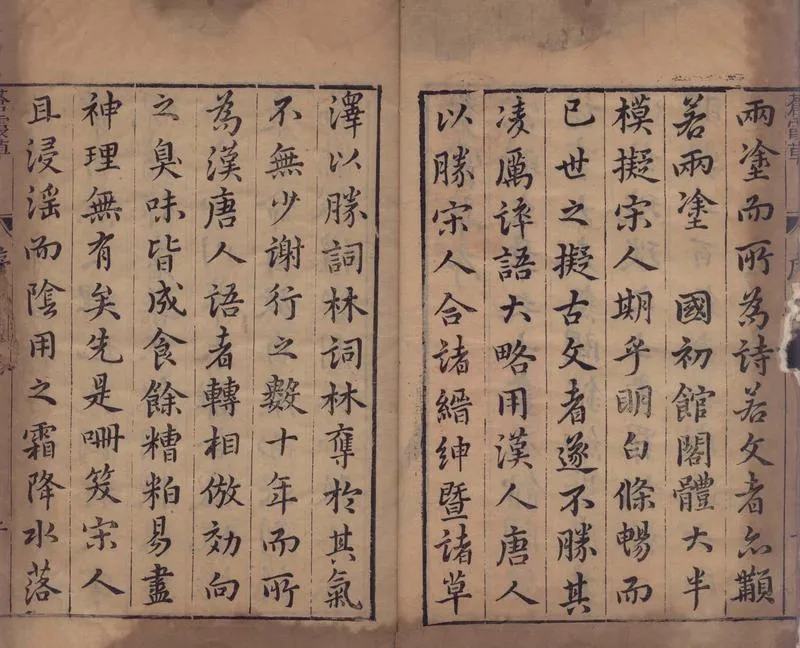 蒼霞草
序
兩塗而所為詩若文者亦
若兩塗 國初館閣體大半
模擬宋人期乎明白條暢而
已世之擬古文者遂不勝其
凌厲誶語大略用漢人唐人
以勝宋人合諸縉紳暨諸草
澤以勝詞林詞林奪於其氣
不無少謝行之數十年而所
為漢唐人語者轉相倣効向
之臭味皆成食餘糟粕易盡
神理無有矣先是笑宋人
且浸淫而陰用之霜降水落
蒼霞草
序